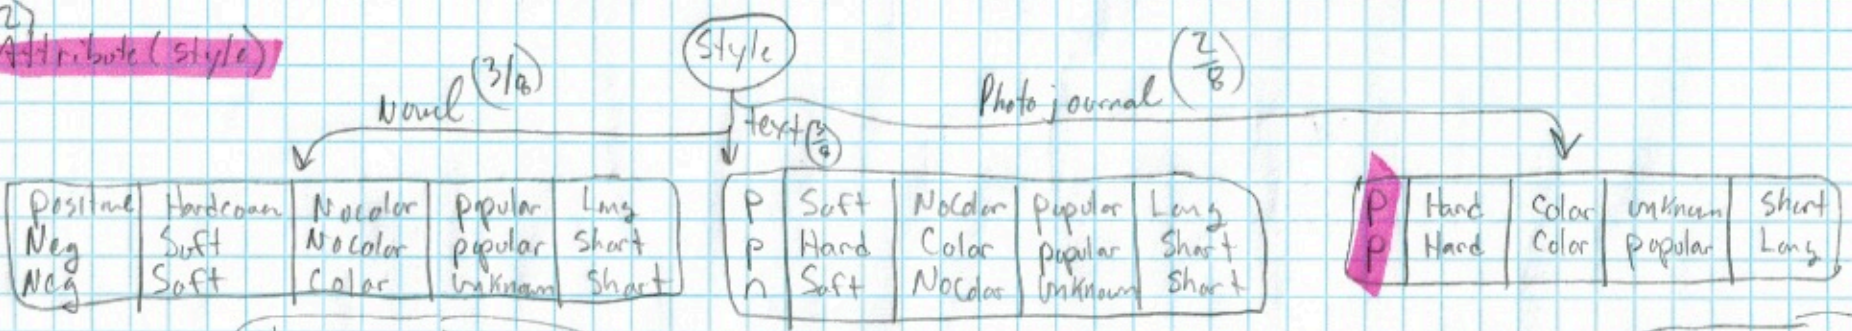 2)
Attribute (Style)
Style
Novel (3/8)
text (3/8)
Photo journal (2/8)
Positive Hardcover Nocolor popular Long
Neg Soft Nocolor popular Short
Neg Soft Color Unknown Short
P Soft NoColor Popular Long
P Hard Color Popular Short
n Soft NoColor Unknown Short
P Hard Color unknown Short
P Hard Color Popular Long